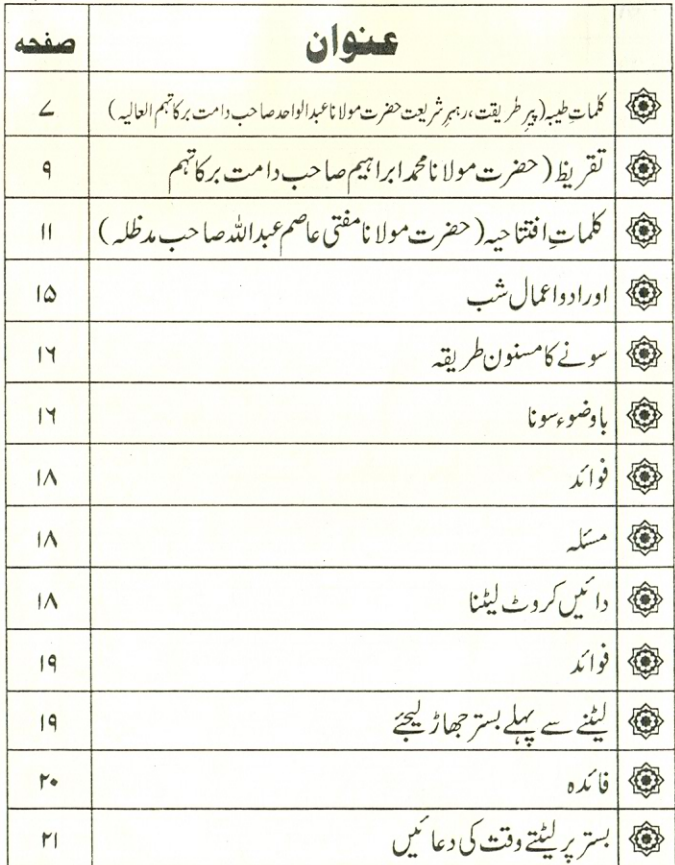 عنوان صفحہ
کلماتِ طیبہ (پیرِ طریقت، رہبرِ شریعت حضرت مولانا عبدالواحد صاحب دامت برکاتہم العالیہ) ۷
تقریظ (حضرت مولانا محمد ابراہیم صاحب دامت برکاتہم ۹
کلماتِ افتتاحیہ (حضرت مولانا مفتی عاصم عبداللہ صاحب مدظلہ) ۱۱
اوراد و اعمال شب ۱۵
سونے کا مسنون طریقہ ۱۶
باوضوء سونا ۱۶
فوائد ۱۸
مسئلہ ۱۸
دائیں کروٹ لیٹنا ۱۸
فوائد ۱۹
لیٹنے سے پہلے بستر جھاڑ لیجئے ۱۹
فائدہ ۲۰
بستر پر لیٹتے وقت کی دعائیں ۲۱